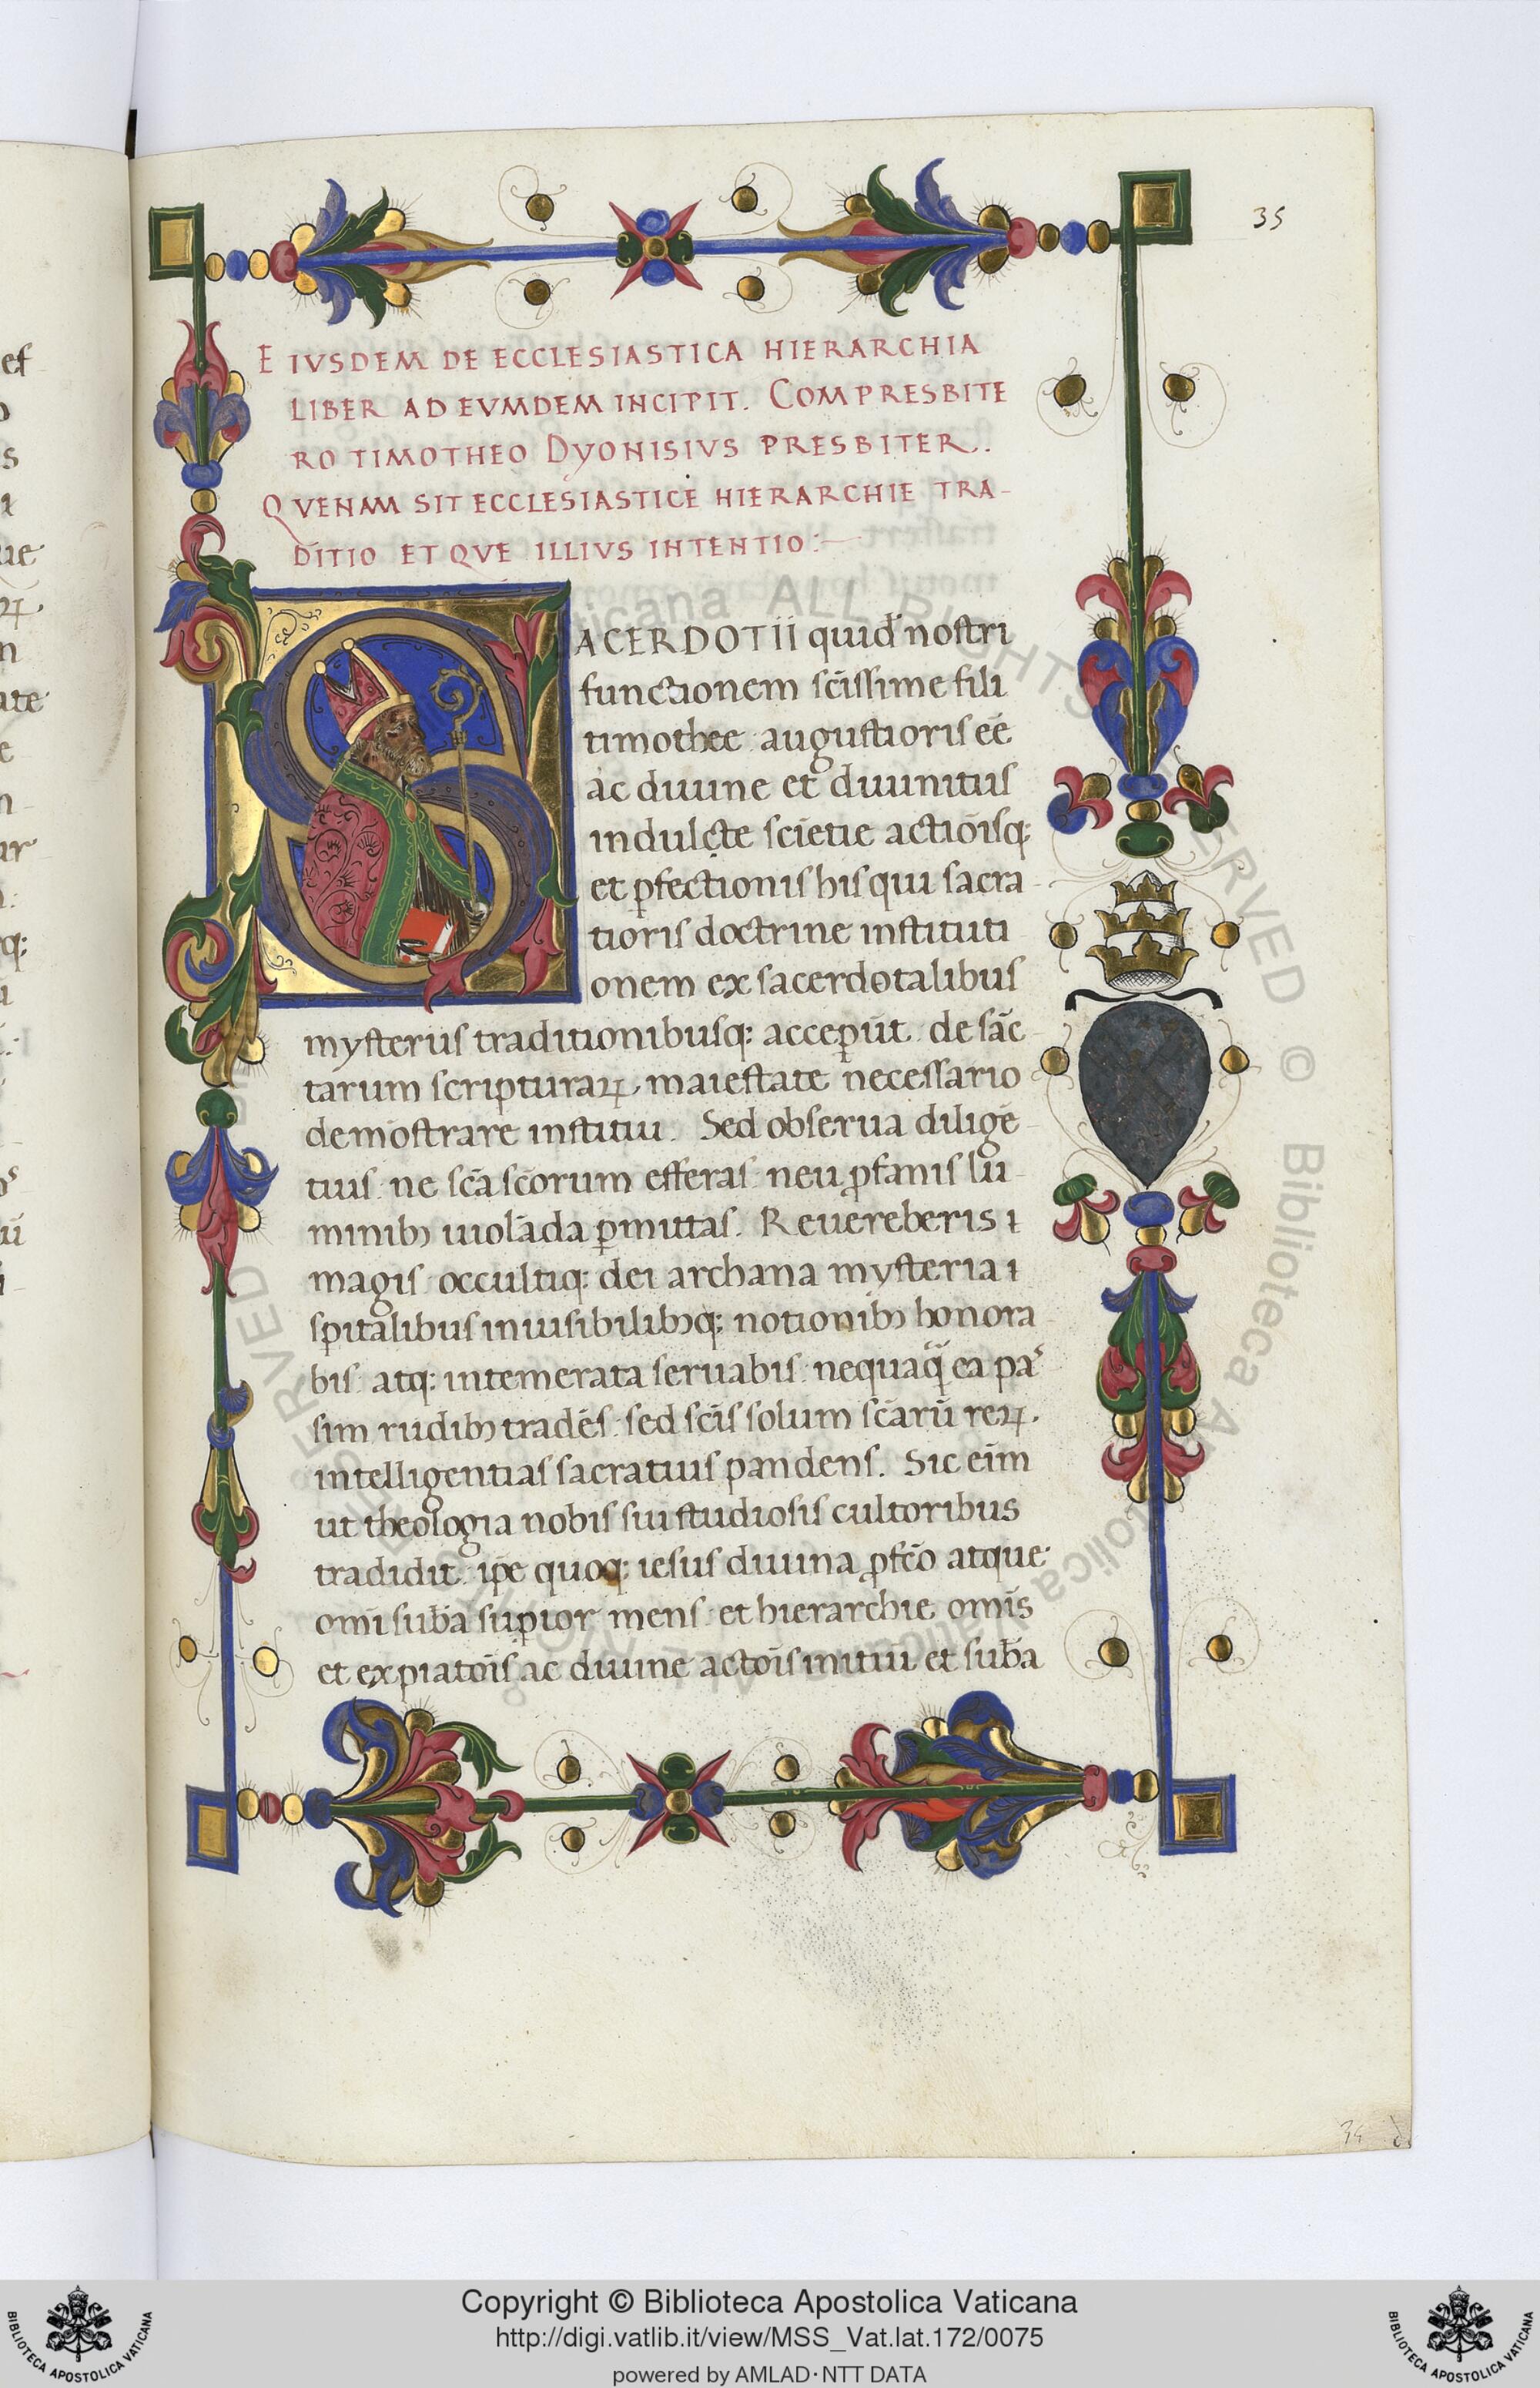 35
EIVSDEM DE ECCLESIASTICA HIERARCHIA
LIBER AD EVMDEM INCIPIT. COMPRESBITE
RO TIMOTHEO DYONISIVS PRESBITER.
QVENAM SIT ECCLESIASTICE HIERARCHIE TRA-
DITIO ET QVE ILLIVS INTENTIO:
SACERDOTII quid̄ nostri
functionem sc̄issime fili
timothee augustioris eē
ac diuine et diuinitus
indulcte sciētie actiōisq;
et ꝑfectionis his qui sacra
tioris doctrine instituti
onem ex sacerdotalibus
mysteriis traditionibusq; acceperūt de sāc
tarum scripturaꝝ maiestate necessario
demōstrare institui. Sed obserua diligē
tius ne sc̄a sc̄orum efferas neu ꝓfanis lu
minibꝫ uiolāda ꝑmittas. Reuereberis ı
magis occultiq; dei archana mysteria ı
spitalibus inuisibilibꝫq; notionibꝫ honora
bis atq; intemerata seruabis nequaq̄ ea paˢ
sim rudibꝫ tradēs sed sc̄is solum sc̄arū reꝝ.
intelligentias sacratius pandens. Sic eīm
ut theologia nobis sui studiosis cultoribus
tradidit ip̄e quoq; iesus diuina ꝓfc̄o atque
om̄i sub̄a suꝑior mens et hierarchie om̄is
et expiatōis ac diuine actōis initiū et sub̄a
34
Copyright © Biblioteca Apostolica Vaticana
http://digi.vatlib.it/view/MSS_Vat.lat.172/0075
powered by AMLAD·NTT DATA
BIBLIOTECA APOSTOLICA VATICANA
BIBLIOTECA APOSTOLICA VATICANA